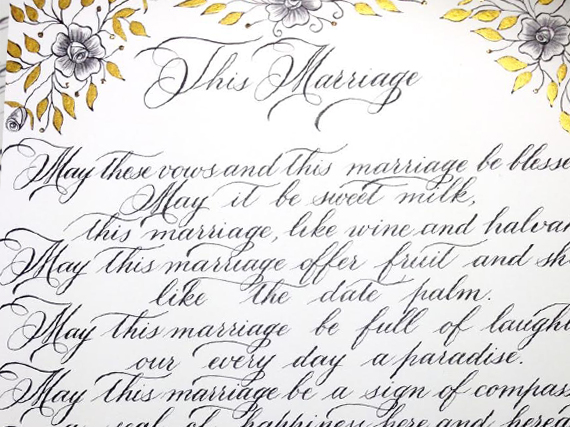 This Marriage
May these vows and this marriage be blesse
May it be sweet milk,
this marriage, like wine and halvah
May this marriage offer fruit and sh
like the date palm.
May this marriage be full of laught
our every day a paradise.
May this marriage be a sign of compass
a seal of happiness here and herea